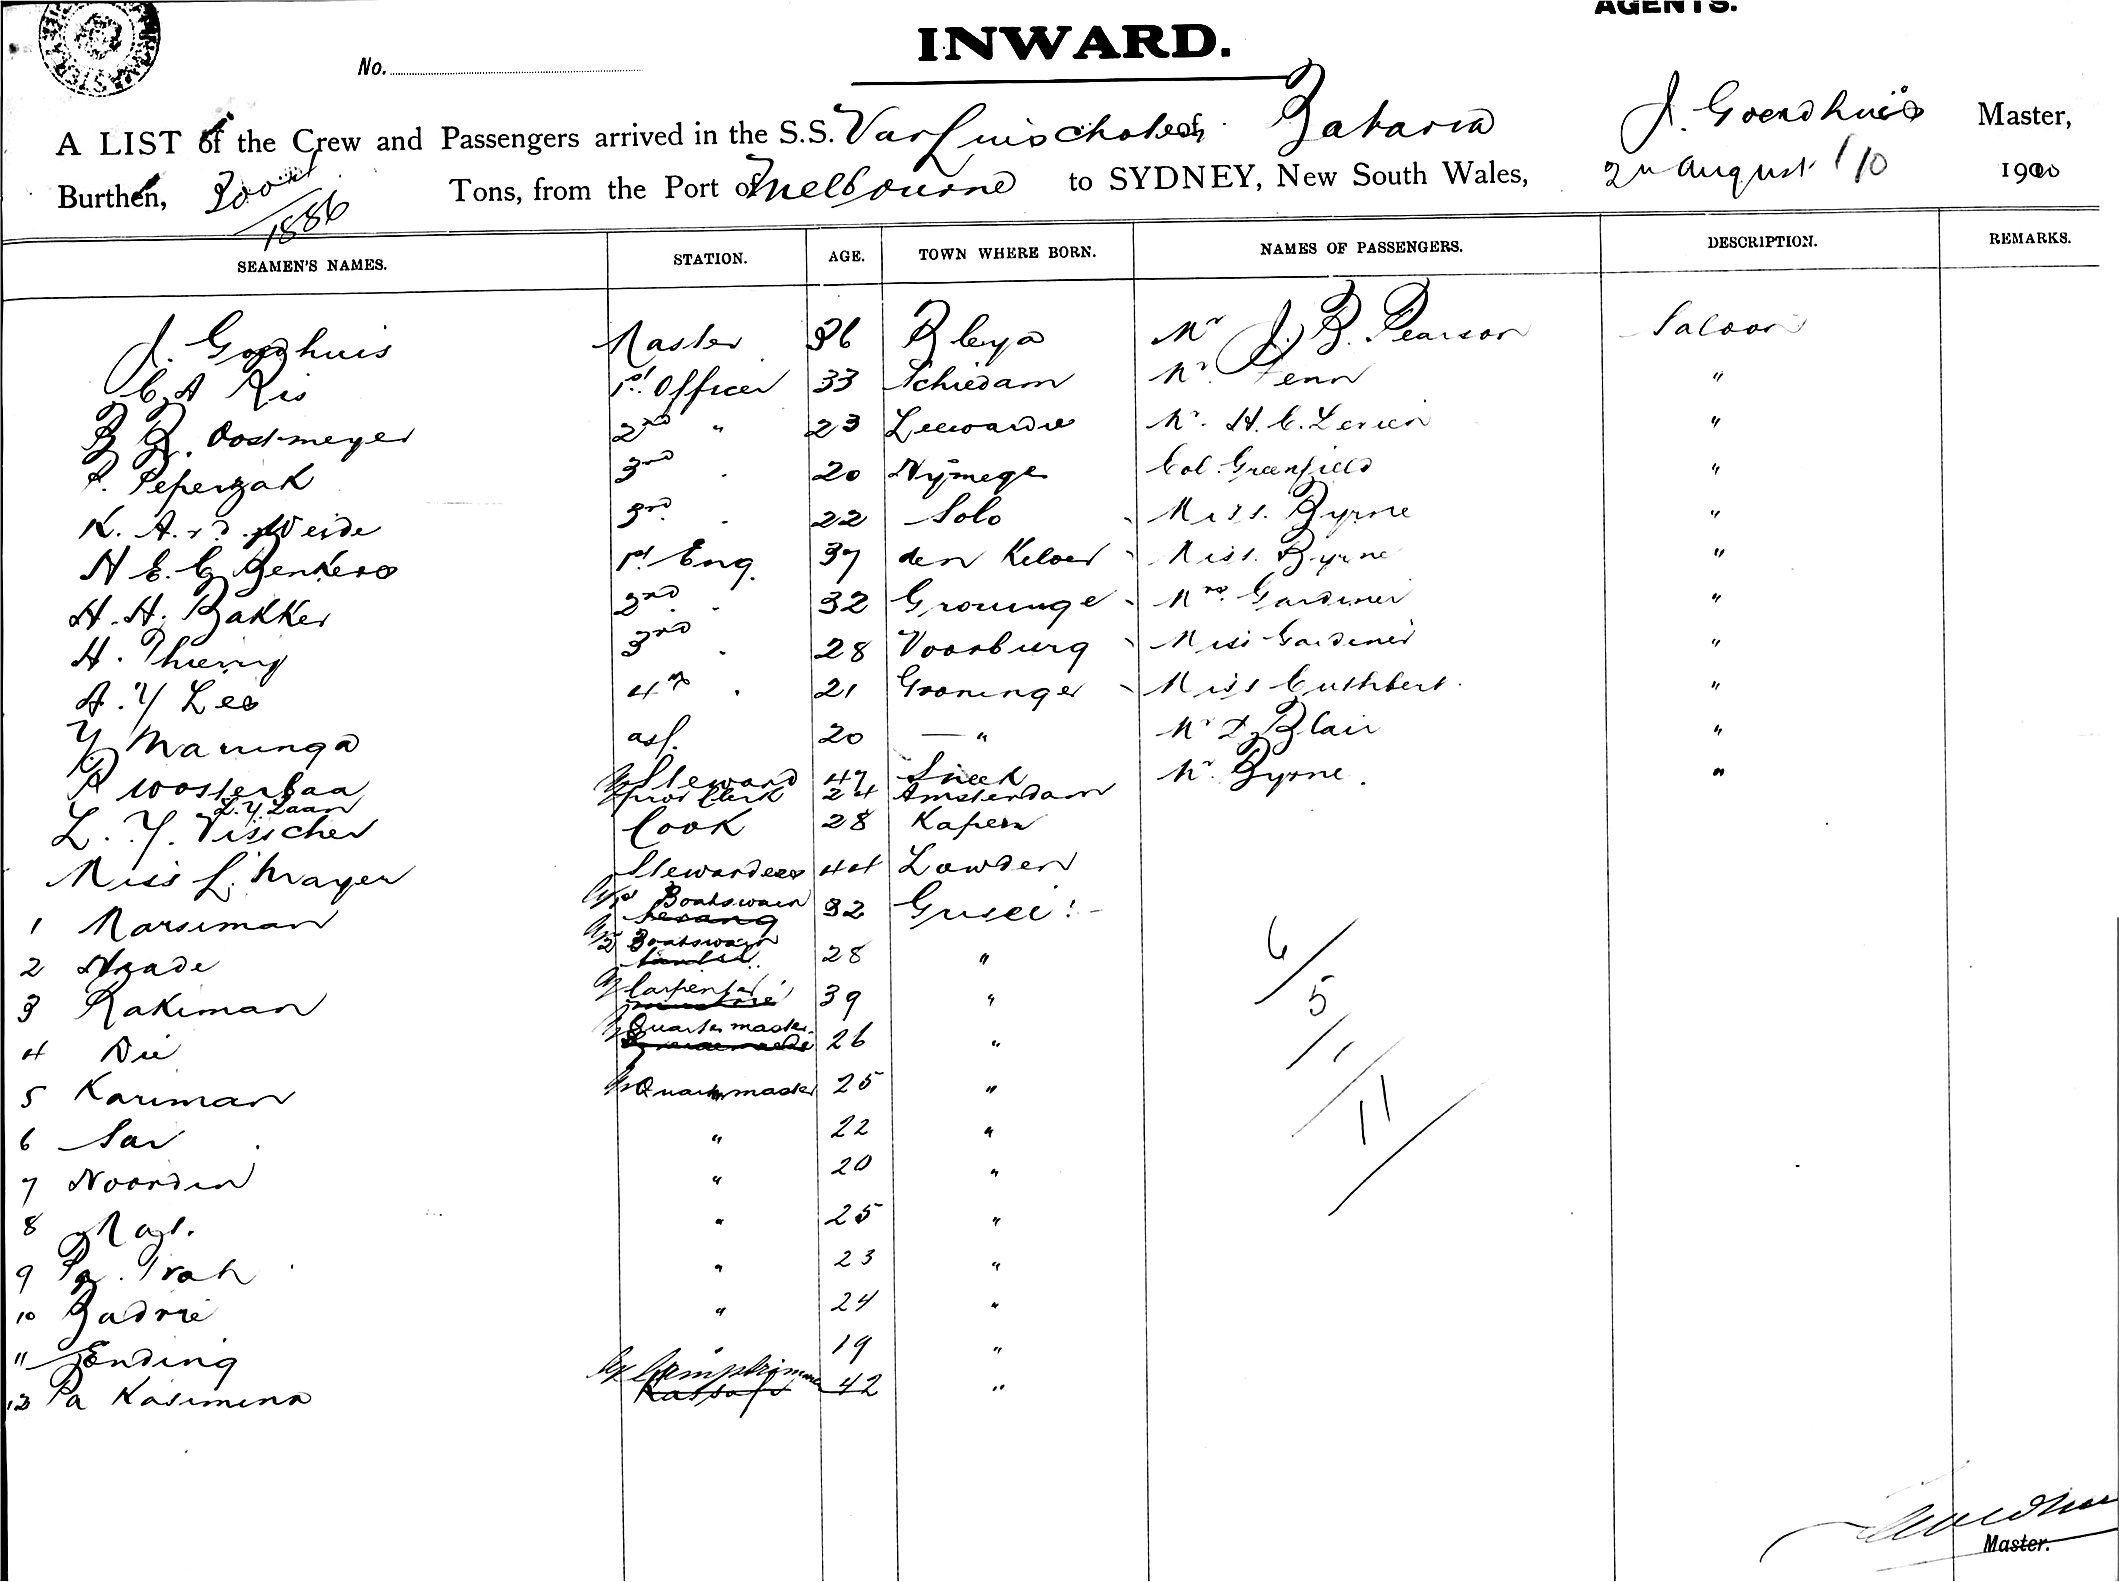 AGENTS.
INWARD.
No.
A LIST of the Crew and Passengers arrived in the S.S. of Batavia J. Goedhuis Master,
Burthen, 1886 Tons, from the Port of Melbourne to SYDNEY, New South Wales, 2n August 1910
SEAMEN'S NAMES. STATION. AGE. TOWN WHERE BORN. NAMES OF PASSENGERS. DESCRIPTION. REMARKS.
J. Goedhuis Master 36 Mr J. B. Pearson Saloon
C. A Ris 1st Officer 33 Schiedam Mr. Fenn "
B B. Oostmeyer 2nd " 23 Mr. H. C. "
P. Peperzak 3rd 20 Nymege Col. Greenfield "
K. A. v d Weide 3rd 22 Solo Miss. Byrne "
H E. G. Benkers 1st Eng. 37 den Miss. Byrne "
H. H. Bakker 2nd 32 Groninge Mrs. Gardiner "
H. Thierry 3rd 28 Voorburg Miss Gardiner "
A. Y Lee 4th 21 Groninger Miss Cuthbert. "
Y Maringa 20 " Mr Blair "
P Woosterbaa Steward 47 Sneek Mr. Byrne. "
L. Y. Laan Clerk 24 Amsterdam
L. Y. Visscher Cook 28
Miss L. Mayer Stewardess 44 Lowden
1 Marsiman 1st Boatswain Serang 32
2 2 Boatswain 28 "
3 Rakiman Carpenter 39 "
4 Quartermaster 26 "
5 Kariman Quartermaster 25 "
6 Sar " 22 "
7 Noordin " 20 "
8 " 25 "
9 " 23 "
10 Badrie " 24 "
11 Ending " 19 "
12 Pa Kasimena Lamptrimmer 42 "
6/5/1/11
Master.